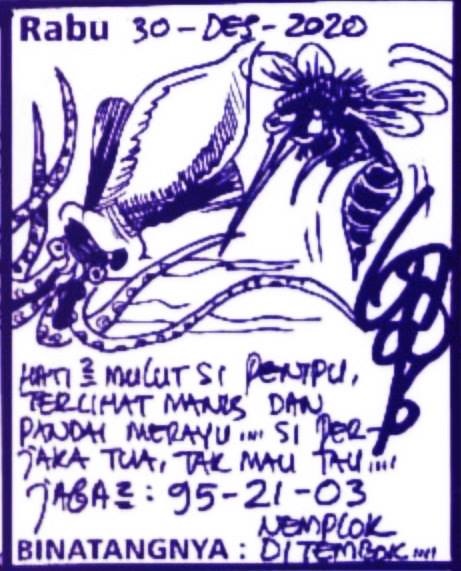 Rabu 30-DES-2020
HATI 2 MULUT SI PENIPU,
TERLIHAT MANIS DAN
PANDAI MERAYU.... SI PER-
JAKA TUA, TAK MAU TAU....
JAGA 2 : 95-21-03
NEMPLOK
BINATANGNYA : DITEMBOK....